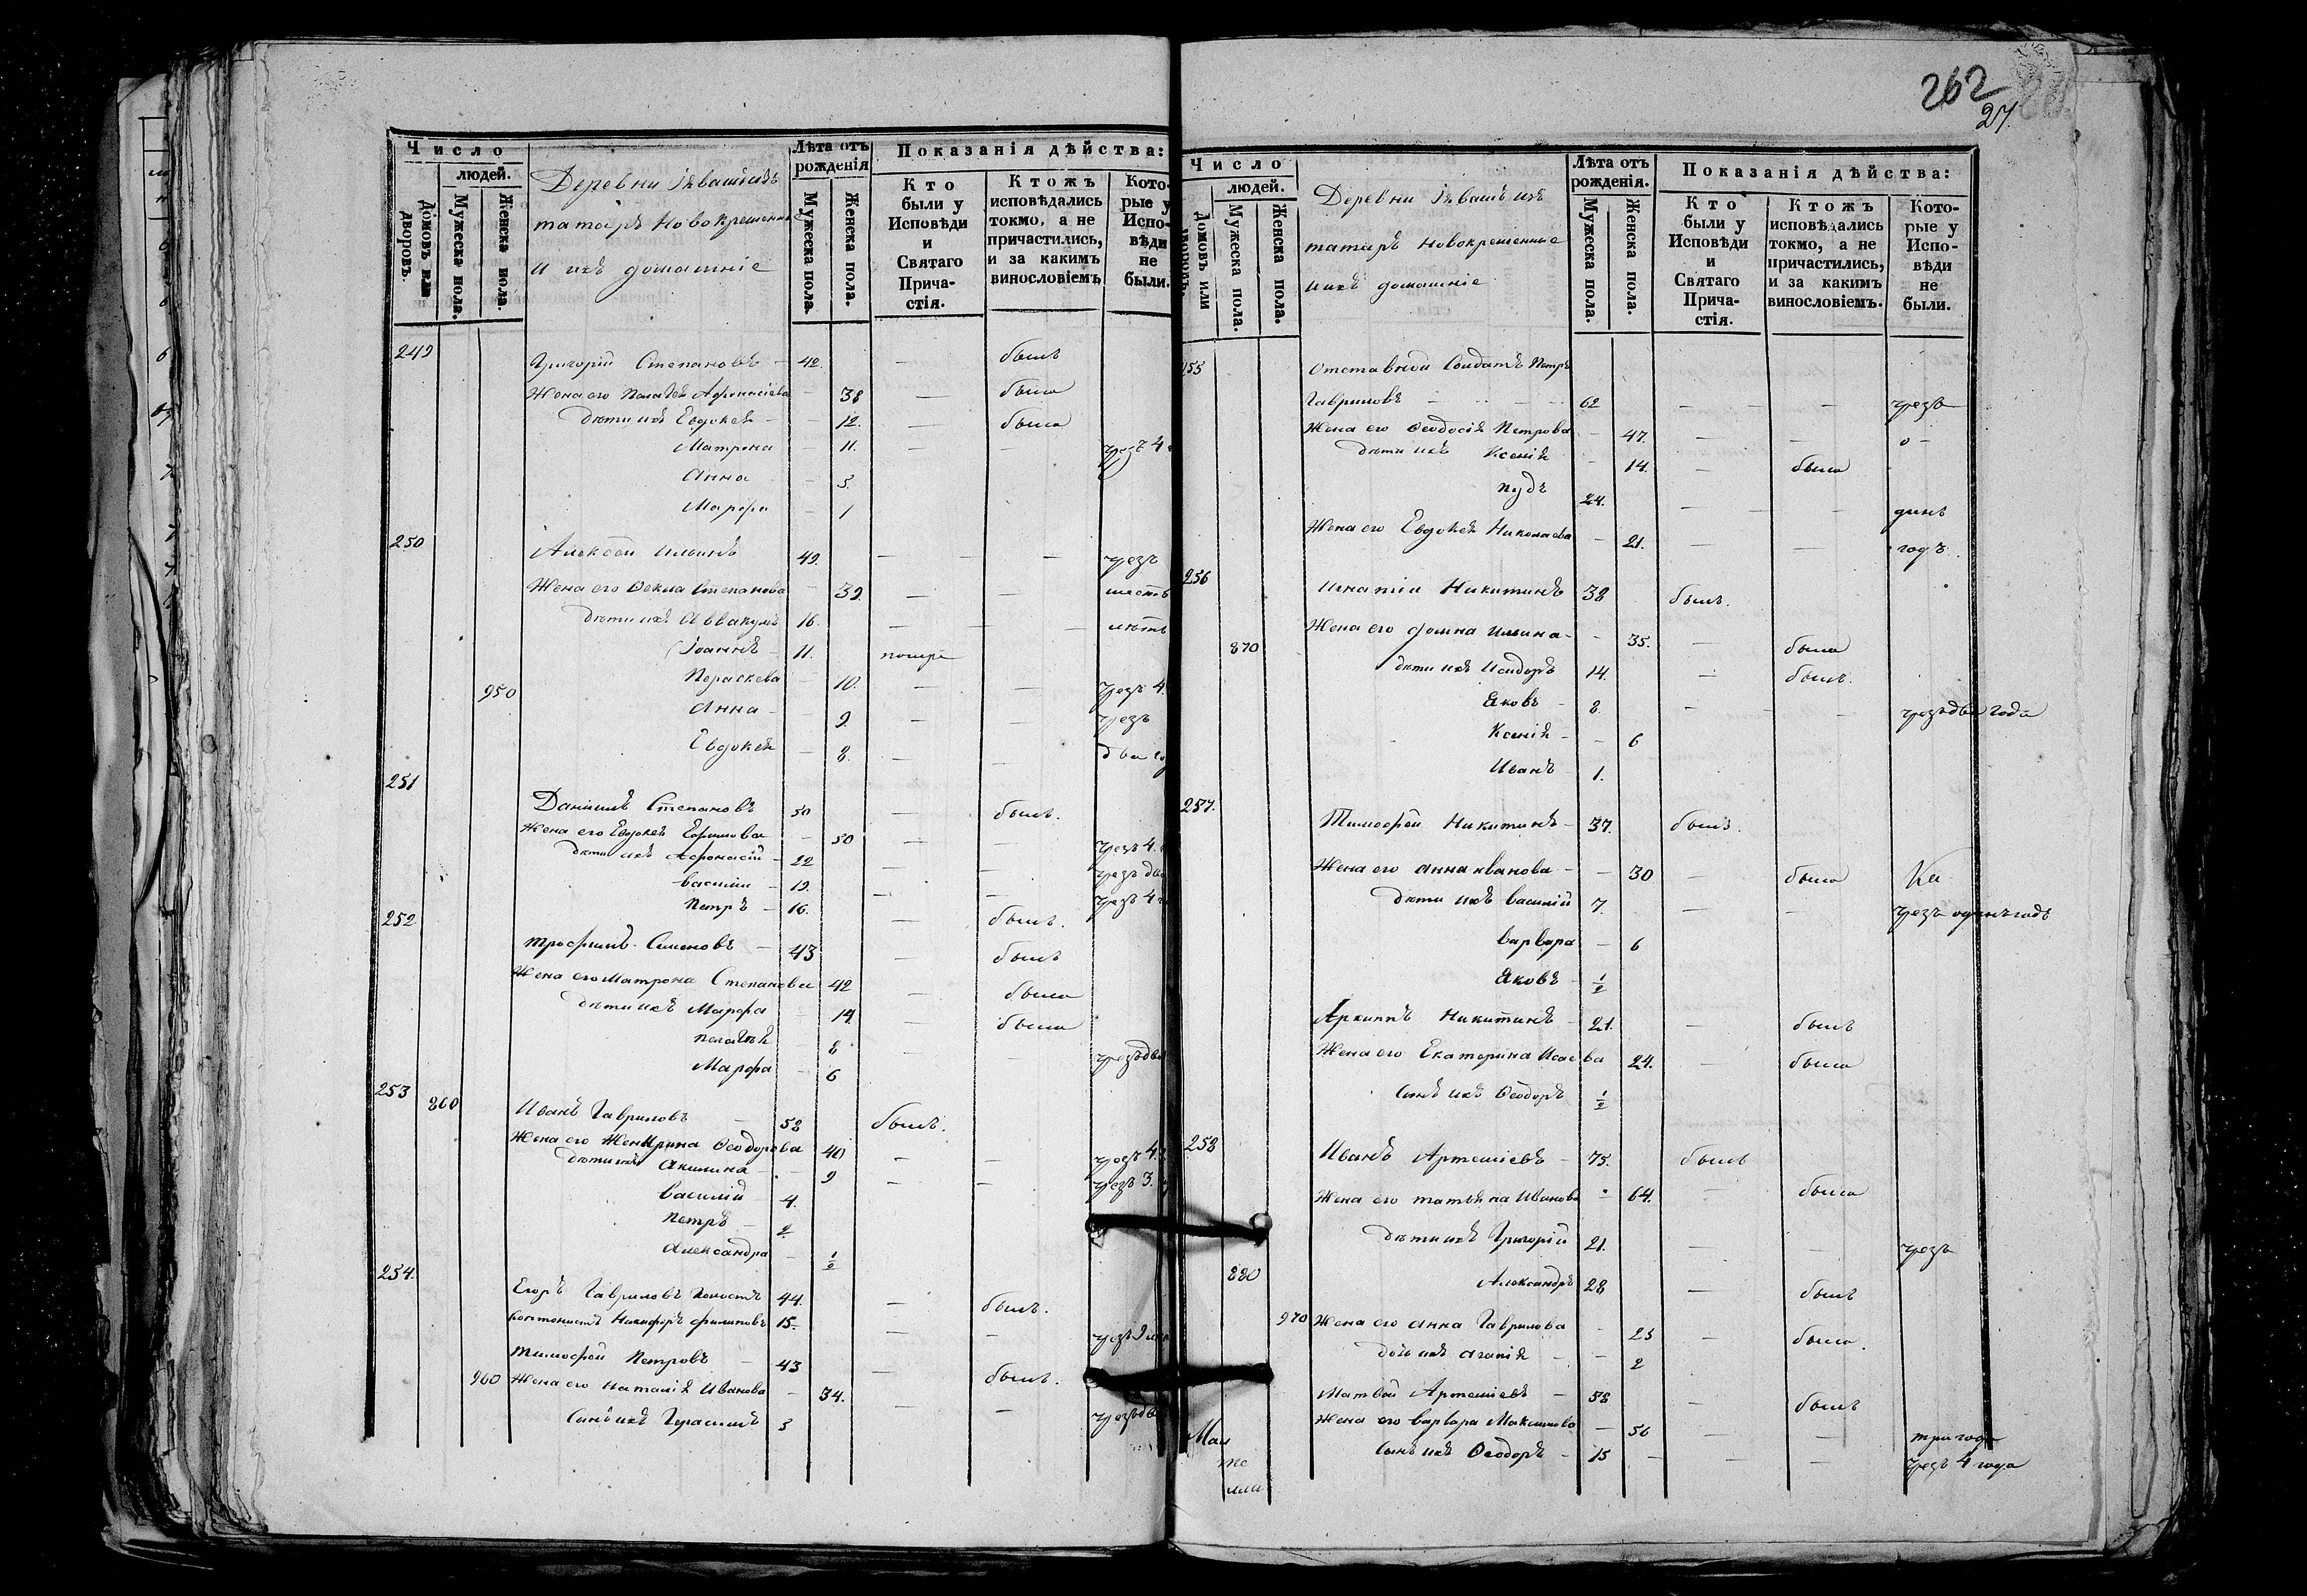 262
27
Число
людей.
Домовъ или дворовъ.
Мужеска пола.
Женска пола.
Деревни
татаръ Новокрещенные
и ихъ домашніе
Лѣта отъ рожденія
Мужеска пола.
Женска пола.
Показанія дѣйства:
Кто были у Исповѣди и Святаго Причастія.
Ктожъ исповѣдались токмо, а не причастились, и за какимъ винословіемъ
Которые у Исповѣди не были.
249 Григорій Степановъ 42. — былъ
Жена его Пелагея Афонасіева 38 — была
дѣти ихъ Евдокея 12. — была
Матрона 11. — — чрез 4
Анна 5.
Марфа 1
250 Алексѣй Ильинъ 49. — — чрезъ
Жена его Ѳекла Степанова 39. — — шесть
дѣти ихъ Аввакумъ 16. — — лѣтъ
Іоаннъ 11. помре
950 Пераскева 10. — — чрезъ 4.
Анна 9. — — чрезъ
Евдокея 8. — — два
251 Даніилъ Степановъ 50 — былъ.
Жена его Евдокея Ефимова 50 — — чрезъ 4.
дѣти ихъ Афонасій 22 — — чрезъ два
Василій 19. — — чрезъ 4
Петръ 16. — былъ.
252 Трофимъ Симоновъ 43 — былъ
Жена его Матрона Степанова 42 — была
дѣти ихъ Марфа 14. — была
Пелагея 8 — — чрезъ два
Марфа 6
253 860 Иванъ Гавриловъ 58 былъ.
Жена его Жен Ирина Ѳеодорова 40 — — чрезъ 4
дѣти ихъ Акилина 9 — — чрезъ 3.
Василій 4.
Петръ 2
Александра 1/2
254. Егоръ Гавриловъ Холостъ 44. — былъ.
Кантонистъ Никифоръ Филиповъ 15 — — чрезъ
Тимофей Петровъ 43 — былъ.
960 Жена его Наталія Иванова 34. — — чрезъ два
Сынъ ихъ Герасимъ 3
Число
людей.
Домовъ или дворовъ.
Мужеска пола.
Женска пола.
Деревни
татаръ Новокрещенные
и ихъ домашніе
Лѣта отъ рожденія.
Мужеска пола.
Женска пола.
Показанія дѣйства:
Кто были у Исповѣди и Святаго Причастія.
Ктожъ исповѣдались токмо, а не причастились, и за какимъ винословіемъ.
Которые у Исповѣди не были.
255 Отставной Солдатъ Петръ
Гавриловъ 62 — — чрезъ
Жена его Ѳеодосія Петрова 47. — — о –
дѣти ихъ Ксенія 14. — была
Пудъ 24. — — динъ
Жена его Евдокея Николаева 21. — — годъ.
256 Игнатій Никитинъ 38 былъ.
870 Жена его Домна Ильина 35. — была
дѣти ихъ Исидоръ 14. — былъ.
Яковъ 8. — — чрезъ два года
Ксенія 6
Иванъ 1.
257. Тимофей Никитинъ 37. былъ.
Жена его Анна Иванова 30 — была
дѣти ихъ Василій 7. — — чрезъ одинъ годъ
Варвара 6
Яковъ 1/2
Архипъ Никитинъ 21. — былъ
Жена его Екатерина Исаева 24. — была
Сынъ ихъ Ѳеодоръ 1/2
258 Иванъ Артеміевъ 75. былъ
Жена его Татьяна Иванова 64. — была
дѣти ихъ Григорій 21. — — чрезъ
880 Александръ 28 — былъ
970 Жена его Анна Гаврилова 23 — была.
дочь ихъ Агапія 2
Матвей Артеміевъ 58 — былъ
Жена его Варвара Максимова 56 — — три года
Сынъ ихъ Ѳеодоръ 15 — — чрезъ 4 года